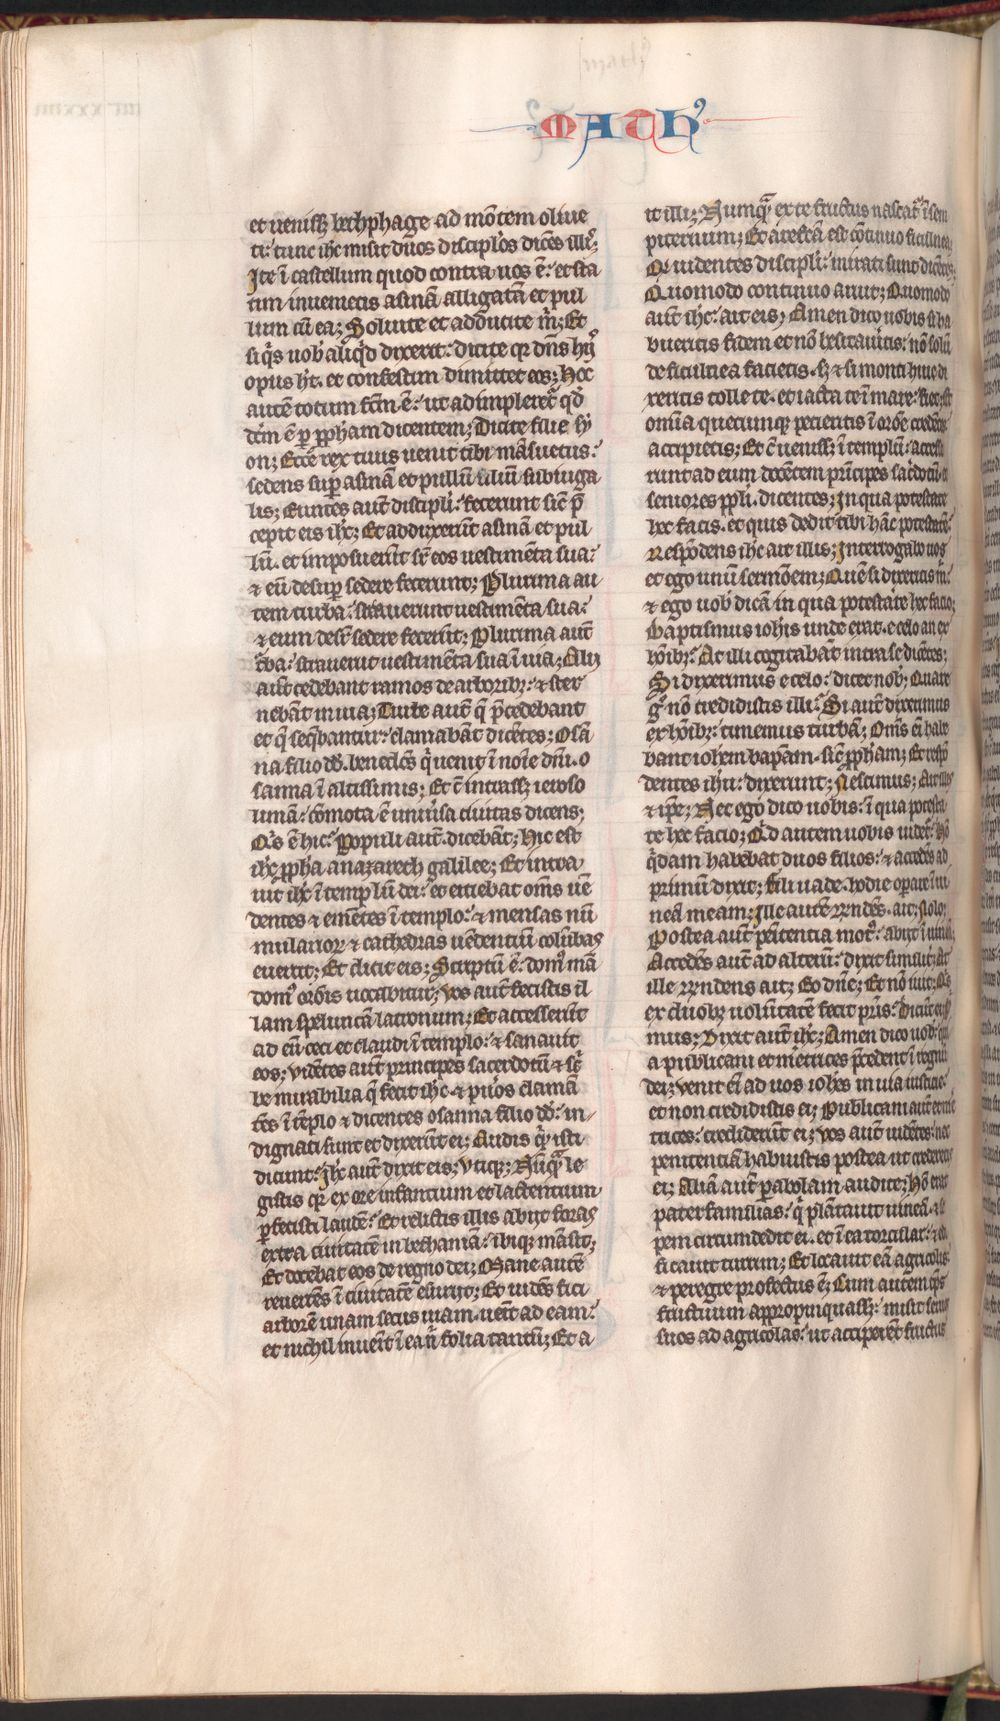 MATh'
et uenissꝫ bethphage ad mōtem oliue
ti: tunc ihc misit duos disciplōs dices illis;
Ite ī castellum quod contra uos ē: et sta
tim inuenietis asinā alligatā et pul
lum cū ea; Soluite et adducite m̄; Et
siq̄s uob' aliq̄d dixerit: dicite qꝛ dn̄s hijs
opus h't. et confestim dimittet eos; Hoc
autē totum fc̄m ē: ut adimpleret' qd'
dc̄m ē ꝑ ꝓph̄am dicentem; Dicite filie sy
on; Ecce rex tuus uenit tibi māsuetus:
sedens suꝑ asinā et pullū filiū subiuga
lis; Euntes aut̄ discipli: fecerunt sic̄ p̄
cepit eis ihc; Et adduxerūt asinā et pul
lū. et imposuerūt sr̄ eos uestimēta sua:
⁊ eū desuꝑ sedere fecerunt; Plurima au
tem turba: strauerunt uestimēta sua:
⁊ eum desr̄ sedere fecerūt; Plurima aut̄
t'ba: strauerūt uestimēta sua ī uia; Alij
aut̄ cedebant ramos de arboribꝫ: ⁊ ster
nebāt in uia; Turbe aut̄ q̄ p̄cedebant
et q̄ seq̄bantur: clamabāt dicētes; Osā
na filio dd̄. benedc̄s q̄ uenit ī noīe dn̄i. o
sanna ī altissimis; Et c̄ intrassꝫ ieroso
limā: cōmota ē uniu'sa ciuitas dicens;
Qis ē hic: Populi aut̄. dicebāt; Hic est
ihc ꝓpha a nazareth galilee; Et intra
uit ihc ī templū dei: et eiciebat om̄s uē
dentes ⁊ emētes ī templo: ⁊ mensas nū
mulariorꝝ ⁊ cathedras uēdentiū colūbas
euertit; Et dicit eis; Scriptū ē: dom' mā
dom' or̄onis uocabitur; Vos aut̄ fecistis il
lam speluncā latronum; Et accesserūt
ad eū ceci et claudi ī templo: ⁊ sanauit
eos; Vidētes aut̄ principes sacerdotū ⁊ sc'
be mirabilia q̄ fecit ihc ⁊ pu'os clamā
tes ī tēplo ⁊ dicentes osanna filio dd̄: in
dignati sunt et dixerūt ei; Audis qd' isti
dicunt: Ihc aut̄ dixit eis; Vtiqꝫ; Nūq̄ le
gistis qꝛ ex ore infantium et lactentium
ꝑfecisti laudē: Et relictis illis abijt foras
extra ciuitatē in bethaniā: ibiqꝫ māsit;
Et docebat eos de regno dei; Mane autē
reuertēs ī ciuitatē esurijt; Et uidēs fici
arborē unam secus uiam. uenit ad eam:
et nichil inuenīt ī ea n̄ folia tantū; Et a
it illi; Numq̄ ex te fructus nascat' ī sem
piternum; Et arefc̄a est cōtinuo ficulnea;
Et uidentes discipli: mirati sunt dicētes;
Quomodo continuo aruit; Quomodo
aut̄ ihc: ait eis; Amen dico uobis si ha
bueritis fidem et nō hesitauitis: nō solū
de ficulnea facietis. sꝫ ⁊ si monti huic di
xeritis tolle te. et iacta te ī mare: fiet; ⁊
omīa quecumqꝫ petieritis ī or̄oe credētes
accipietis; Et c̄ uenissꝫ ī templū: accesse
runt ad eum docētem prīncipes sac'dotū ⁊
seniores ppli. dicentes; In qua potestate
hec facis. et quis dedit tibi hāc potestatē:
Respōdens ihc ait illis; Interrogabo uos
et ego unū sermōem; Quē si dixeritis m̄:
⁊ ego uob' dicā in qua potestate hec facio;
Baptismus ioh̄is unde erat. e celo an ex
hōibꝫ: At illi cogitabāt intra se dicētes;
Si dixerimus e celo: dicet nob'; Quare
g° nō credidistis illi: Si aut̄ dixerimus
ex hōibꝫ: timemus turbā; Om̄s ei habe
bant ioh̄em bap̄am. sic̄ ꝓph̄am; Et respō
dentes ih'u: dixerunt; Nescimus; Ait illis
⁊ ip̄e; Nec ego dico uobis: ī qua potesta
te hec facio; Qd' autem uobis uidet': Hō
q̄dam habebat duos filios: ⁊ accedēs ad
primū dixit; fili uade. hodie operare ī ui
neā meam; Ille autē rn̄dēs. ait; Nolo;
Postea aut̄ penitentia mot': abijt ī uineā;
Accedēs aut̄ ad alterū: dixit similit'; At
ille rn̄dens ait; Eo dn̄e; Et nō iuit; Qis
ex duobꝫ uolūtatē fecit pr̄is: Dicūt ei
mus; Dixit aut̄ ihc; Amen dico uob' qꝛ
a publicani et m'etrices p̄cedent ī regnū
dei; Venit ei ad uos ioh̄es in uia iusticie:
et non credidistis ei; Publicani aut̄ et me
trices: crediderūt ei; Vos aut̄ uidētes: nec
penitentiā habuistis postea ut crederetis
ei; Aliā aut̄ ꝑabolam audite; Hō erat
paterfamilias: q̄ plātauit uineā. ⁊ se
pem circumdedit ei. et ī ea torcular: ⁊ edi
ficauit turrim; Et locauit eā agricolis.
⁊ peregre profectus ē; Cum autem tp̄s
fructuum appropinquassꝫ: misit seruos
suos ad agricolas: ut acciperēt fructus